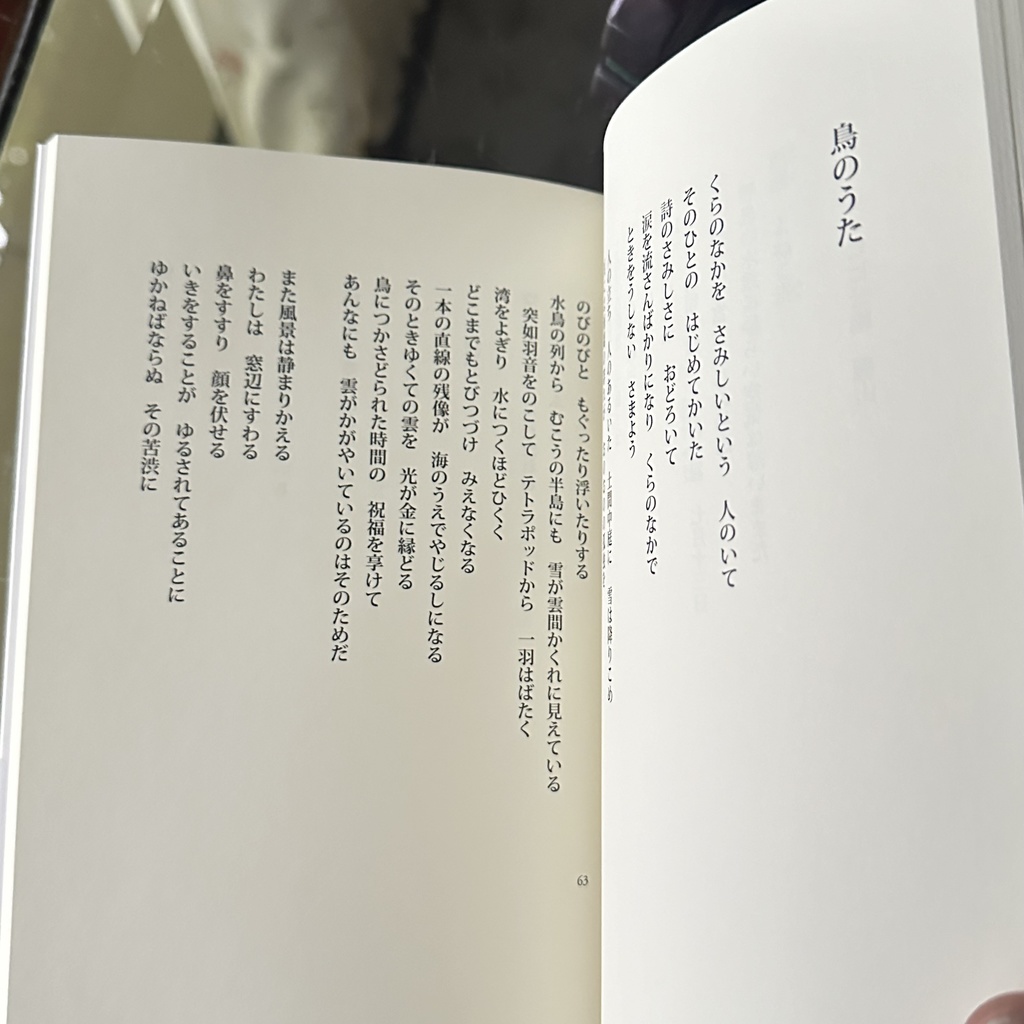 鳥のうた
くらのなかを　さみしいという　人のいて
そのひとの　はじめてかいた
詩のさみしさに　おどろいて
涙を流さんばかりになり　くらのなかで
ときをうしない　さまよう
土間中庭に　雪は降りこめ
のびのびと　もぐったり浮いたりする
水鳥の列から　むこうの半島にも　雪が雲間かくれに見えている
突如羽音をのこして　テトラポッドから　一羽はばたく
湾をよぎり　水につくほどひくく
どこまでもとびつづけ　みえなくなる
一本の直線の残像が　海のうえでやじるしになる
そのときゆくての雲を　光が金に縁どる
鳥につかさどられた時間の　祝福を享けて
あんなにも　雲がかがやいているのはそのためだ
また風景は静まりかえる
わたしは　窓辺にすわる
鼻をすすり　顔を伏せる
いきをすることが　ゆるされてあることに
ゆかねばならぬ　その苦渋に
63